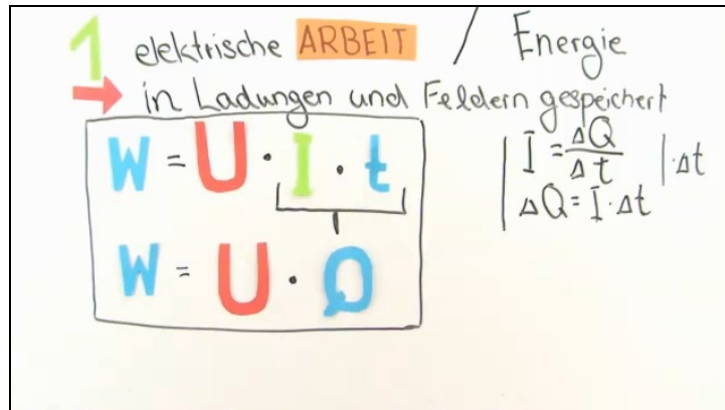 1 elektrische ARBEIT / Energie
→ in Ladungen und Feldern gespeichert
W = U · I · t
W = U · Q
I = ΔQ/Δt |·Δt
ΔQ = I · Δt